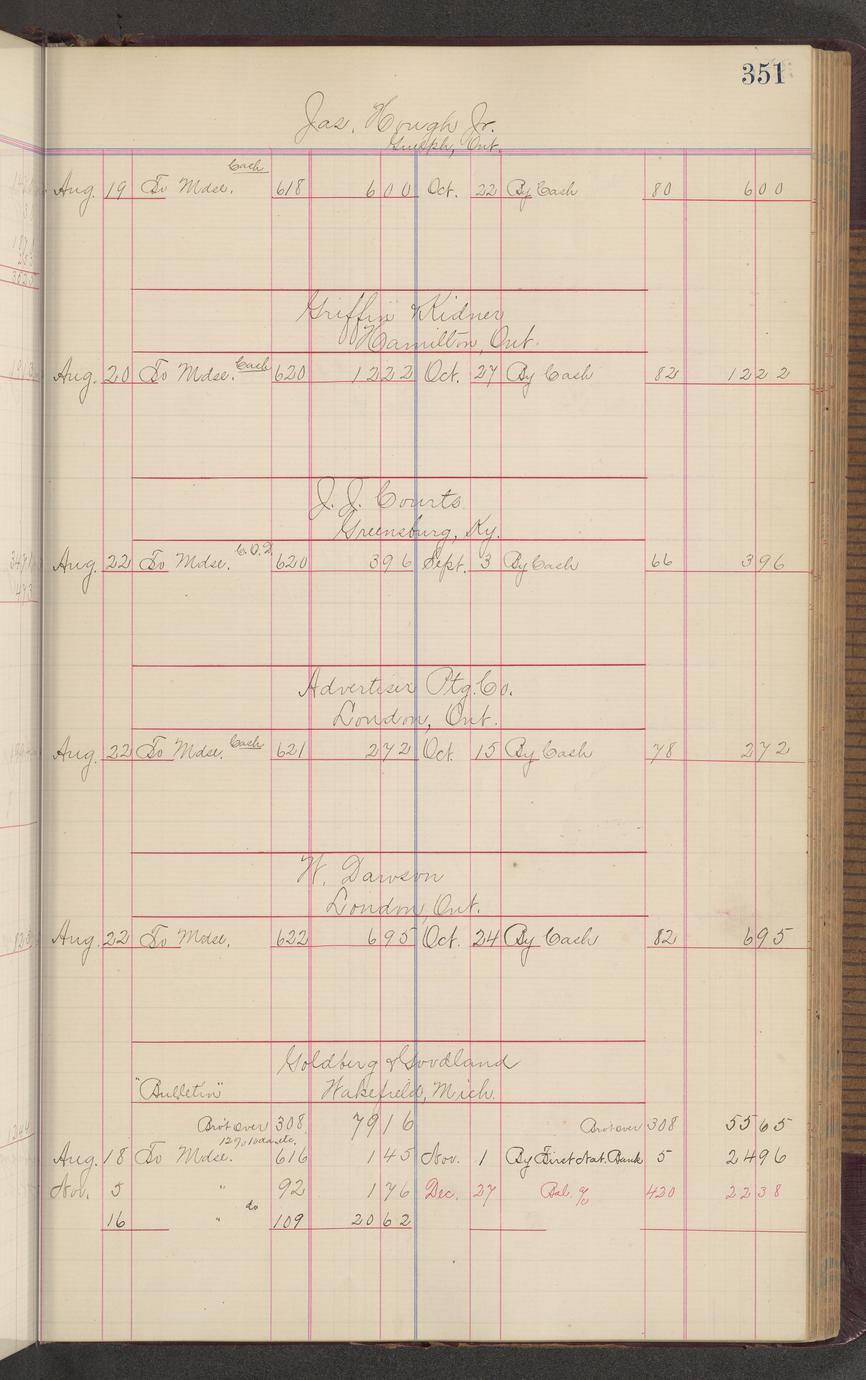 351
Jas. Hough Jr.
Guelph, Ont.
Aug. 19 To Mdse. Cash 618 600 Oct. 22 By Cash 80 600
Griffin & Kidner
Hamilton, Ont.
Aug. 20 To Mdse. Cash 620 1222 Oct. 27 By Cash 82 1222
J. J. Courts
Greensburg, Ky.
Aug. 22 To Mdse. C.O.D. 620 396 Sept. 3 By Cash 66 396
Advertiser Ptg. Co.
London, Ont.
Aug. 22 To Mdse. Cash 621 272 Oct. 15 By Cash 78 272
W. Dawson
London, Ont.
Aug. 22 To Mdse. 622 695 Oct. 24 By Cash 82 695
Goldberg & Goodland
"Bulletin" Wakefield, Mich.
Brot over 308 7916 Brot over 308 5565
Aug. 18 To Mdse. 12% 10 das. etc. 616 145 Nov. 1 By First Nat. Bank 5 2496
Nov. 5 " 92 176 Dec. 27 Bal. % 420 2238
16 " do 109 2062